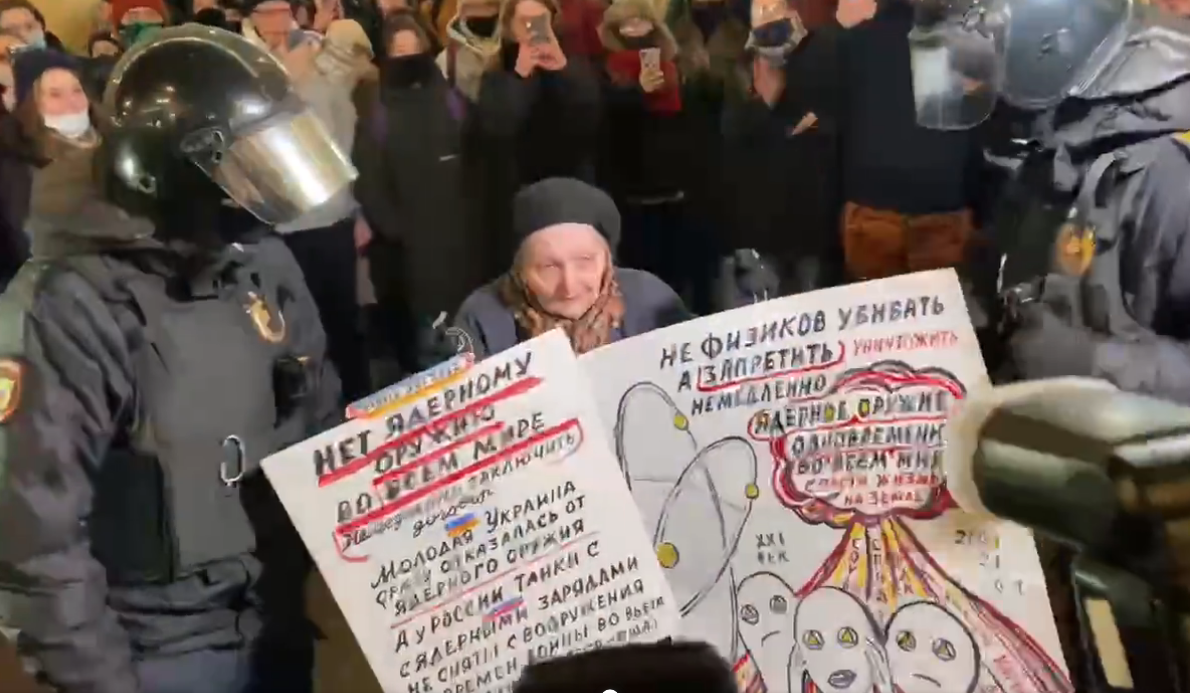 НЕТ ЯДЕРНОМУ
ОРУЖИЮ
ВО ВСЕМ МИРЕ
заключить
договор
МОЛОДАЯ УКРАИНА
СРАЗУ ОТКАЗАЛАСЬ ОТ
ЯДЕРНОГО ОРУЖИЯ
А У РОССИИ ТАНКИ С
ЯДЕРНЫМИ ЗАРЯДАМИ
НЕ СНЯТЫ С ВООРУЖЕНИЯ
ВРЕМЕН ВОЙНЫ ВО ВЬЕТ
НЕ ФИЗИКОВ УБИВАТЬ
А ЗАПРЕТИТЬ) УНИЧТОЖИТЬ
НЕМЕДЛЕННО
ЯДЕРНОЕ ОРУЖИЕ
ОДНОВРЕМЕНН
ВО ВСЕМ МИР
СПАСТИ ЖИЗНЬ
НА ЗЕМЛЕ
XXI
ВЕК